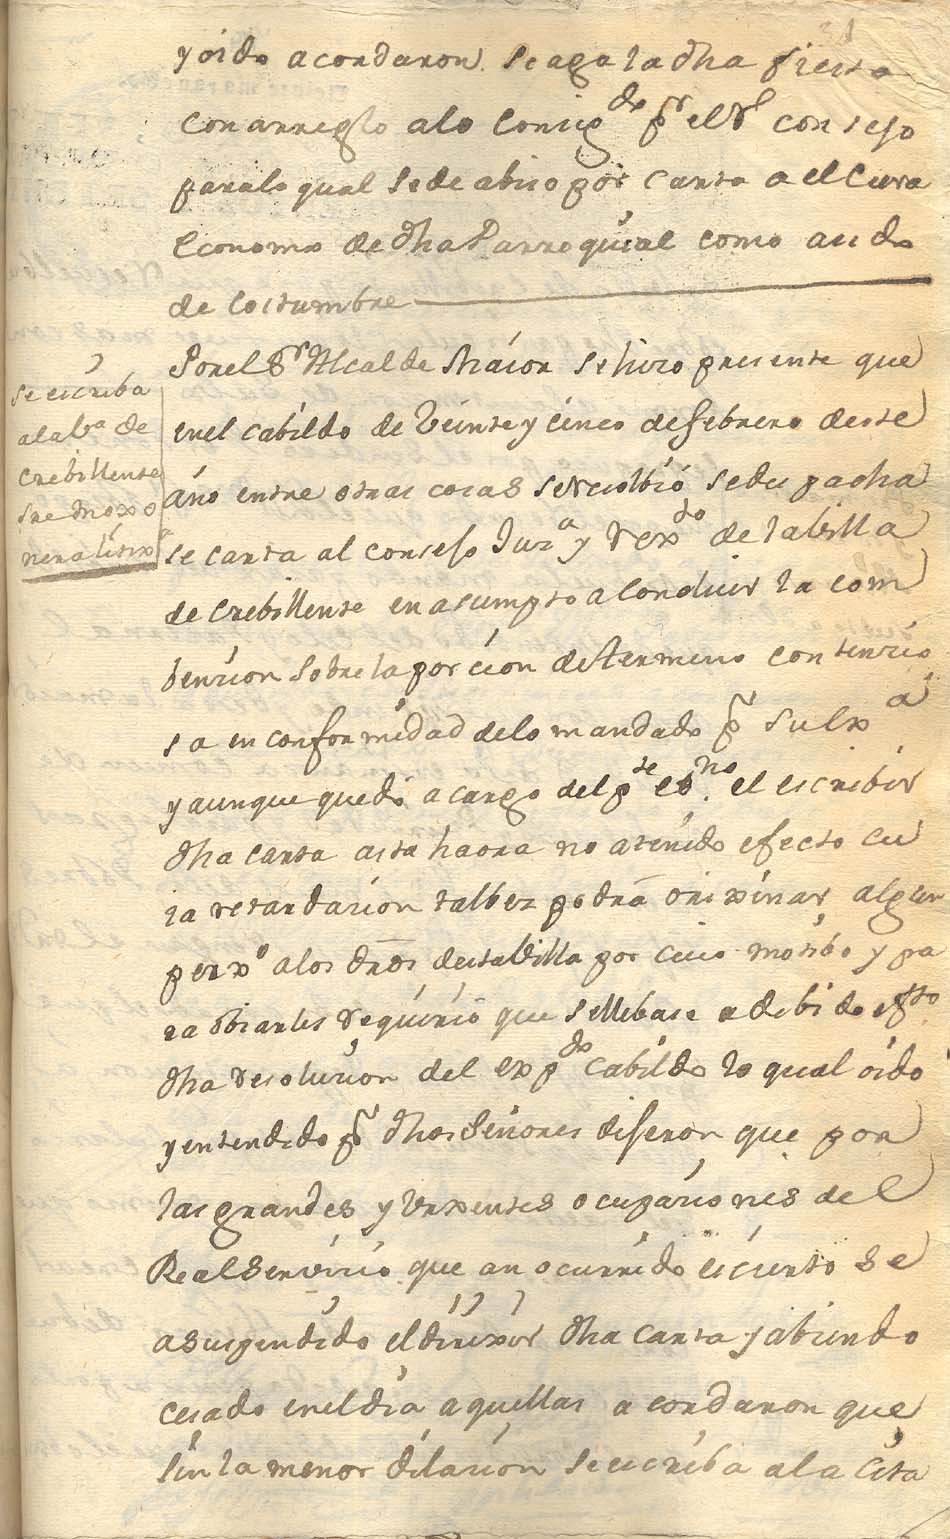 31
y oido acordaron se aga la dha fiesta
con arreglo a lo Consig.do pr el Rl consejo
para lo qual se de abiso por Carta a el Cura
Economo de dha Parroquial como a sido
de Costumbre
Por el Sr Alcalde Maior se hizo presente que
en el cabildo de Veinte y cinco de febrero deste
año entre otras cosas se resolbió se despacha
se carta al consejo Juza y rexdo de la billa
de Crebillente en asumpto a Conduir la com
benzion sobre la porcion de termino contenzio
sa en conformidad de lo mandado pr su Exa
y aunque quedó a cargo del pste esno el escribir
dha carta asta haora no a tenido efecto cu
ia retardazion talbez podrá orixinar algun
perxo a los dros desta Villa por cuio motibo y pa
ra obiarles requirió que se llebase a debido efto
dha resoluzion del expdo Cabildo lo qual oido
y entendido pr dhos Señores dijeron que por
las grandes y urxentes ocupaziones del
Real Servizio que an ocurrido es cierto se
a suspendido el dirixir dha carta y abiendo
cesado en el dia aquellas acordaron que
sin la menor dilazion se escriba a la cita
se escriba
a la ba de
Crebillente
sre moxo
nera